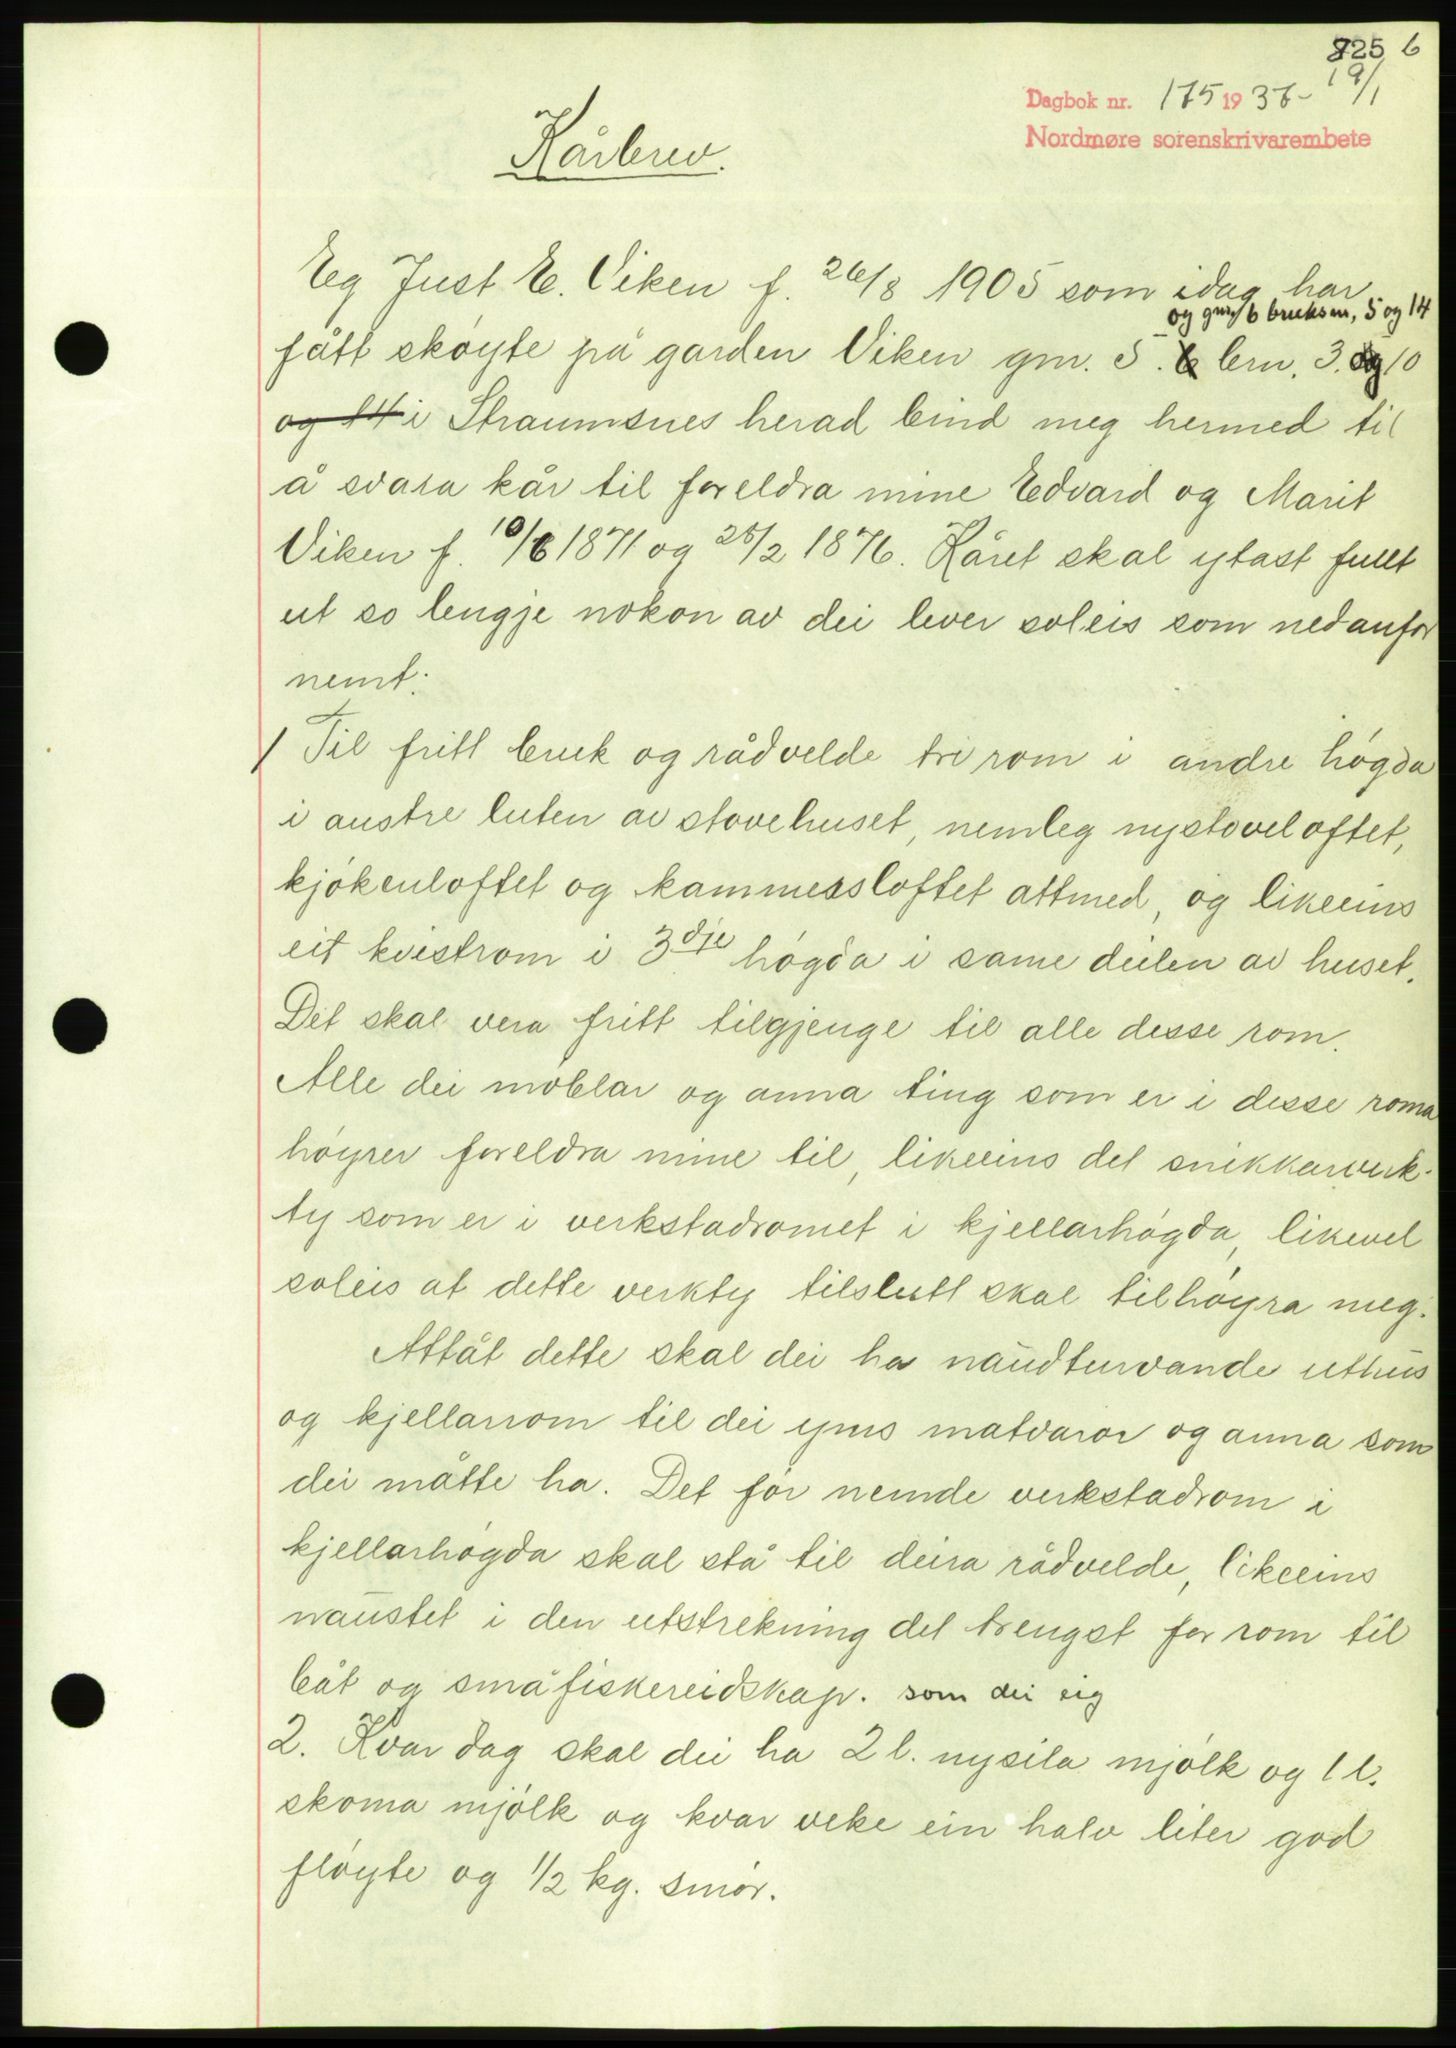 825 6
Dagbok nr. 175 1937- 19/1
Nordmøre sorenskrivarembete
Kårbrev.
Eg Just E. Viken f. 26/8 1905 som idag har
og gnr. 6 bruksnr, 5 og 14
fått skøyte på garden Viken gnr. 5. brn. 3. og 10
og 14 i Straumsnes herad bind meg hermed til
å svara kår til foreldra mine Edvard og Marit
Viken f. 10/6 1871 og 25/2 1876. Kåret skal ytast fullt
ut so lengje nokon av dei lever soleis som nedanfor
nemt:
1 Til fritt bruk og rådvelde tri rom i andre høgda
i austre luten av stovehuset, nemleg nystoveloftet,
kjøkenloftet og kammersloftet attmed, og likeeins
eit kvistrom i 3dje høgda i same deilen av huset.
Det skal vera fritt tilgjenge til alle desse rom.
Alle dei møblar og anna ting som er i desse roma
høyrer foreldra mine til, likeeins det snikkarverk-
ty som er i verkstadromet i kjellarhøgda, likevel
soleis at dette verkty tilslutt skal tilhøyra meg.
Attåt dette skal dei ha naudturvande uthus
og kjellarrom til dei yms matvaror og anna som
dei måtte ha. Det før nemde verkstadrom i
kjellarhøgda skal stå til deira rådvelde, likeeins
naustet i den utstrekning det trengst for rom til
båt og småfiskereidskap. som dei eig
2. Kvar dag skal dei ha 2 l. nysila mjølk og 1 l.
skoma mjølk og kvar veke ein halv liter god
fløyte og 1/2 kg. smør.